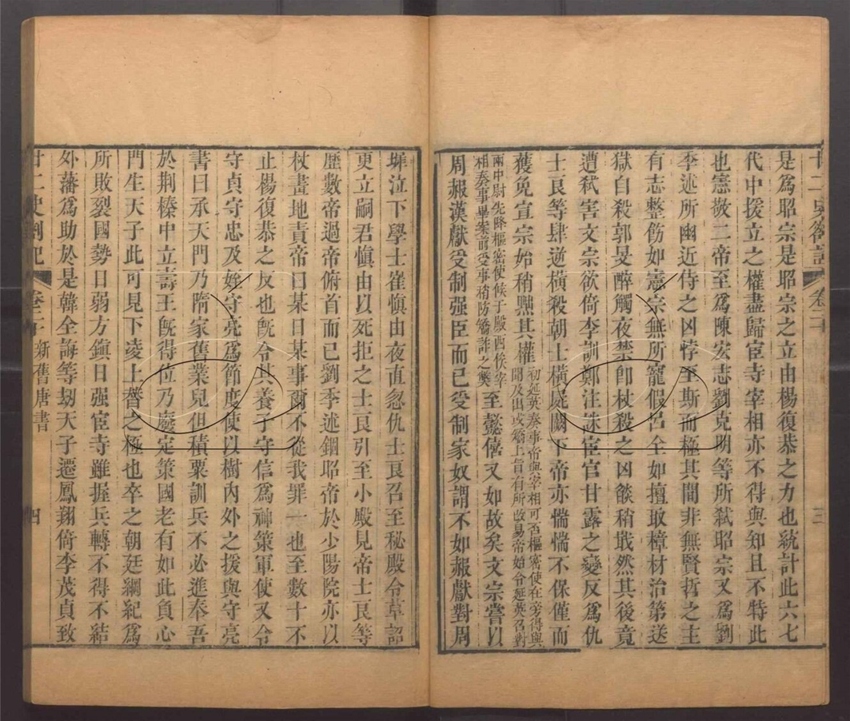 是爲昭宗是昭宗之立由楊復恭之力也統計此六七
代中援立之權盡歸宦寺宰相亦不得與知且不特此
也憲敬二帝至爲陳宏志劉克明等所弑昭宗又爲劉
季述所幽近侍之凶悖至斯而極其間非無賢哲之主
有志整飭如憲宗無所寵假呂全如擅取樟材治第送
獄自殺郭旻醉觸夜禁卽杖殺之凶燄稍戢然其後竟
遭弑害文宗欲倚李訓鄭注誅宦官甘露之變反爲仇
士良等肆逆橫殺朝士橫屍闕下帝亦惴惴不保僅而
獲免宣宗始稍黜其權初延英奏事帝與宰相可否樞密使在旁得與
聞及出或矯上旨有所改易帝始令延英召對
兩中尉先降樞密使候于殿西俟宰
相奏事畢案前受事稍防矯詐之獘至懿僖又如故矣文宗嘗以
周赧漢獻受制强臣而已受制家奴謂不如赧獻對周
墀泣下學士崔愼由夜直忽仇士良召至秘殿令草詔
更立嗣君愼由以死拒之士良引至小殿見帝士良等
歷數帝過帝俯首而已劉季述錮昭帝於少陽院亦以
杖畫地責帝曰某日某事爾不從我罪一也至數十不
止楊復恭之反也旣令其養子守信爲神策軍使又令
守貞守忠及姪守亮爲節度使以樹內外之援與守亮
書曰承天門乃隋家舊業兒但積粟訓兵不必進奉吾
於荆榛中立壽王旣得位乃廢定策國老有如此負心
門生天子此可見下凌上替之極也卒之朝廷綱紀爲
所敗裂國勢日弱方鎭日强宦寺雖握兵轉不得不結
外藩爲助於是韓全誨等刼天子遷鳳翔倚李茂貞致
廿二史劄記 卷二十 新舊唐書 四